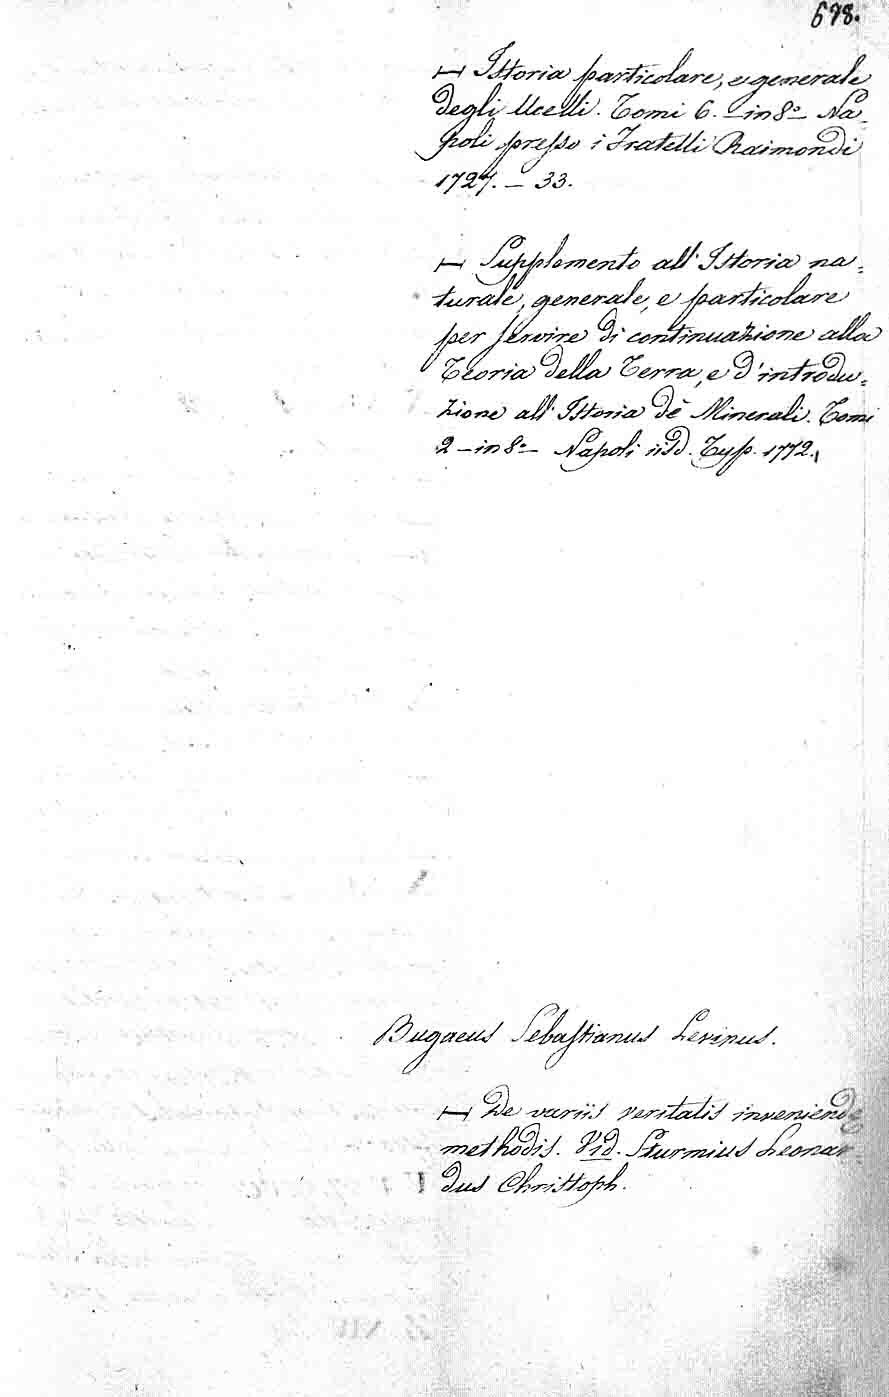 678.
— Istoria particolare, e generale
degli Ucelli. Tomi 6. — in 8.o — Na=
poli presso i Fratelli Raimondi
1727. — 33.
— Supplemento all' Istoria na=
turale, generale, e particolare
per servire di continuazione alla
Teoria della Terra, e d'introdu=
zione all' Istoria de' Minerali. Tomi
2 — in 8.o — Napoli iisd. Typ. 1772.
Bugaeus Sebastianus Levinus.
— De variis veritatis inveniendę
methodis. Vid. Sturmius Leonar=
dus Christoph.